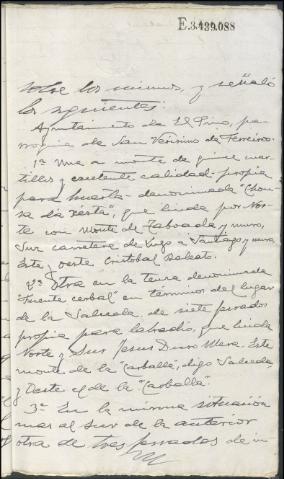 E.3439.088
sobre los mismos, y señaló
los siguientes:
Ayuntamiento de El Pino, pa-
rroquia de San Verísimo de Ferreiros.
1ª Una a monte de
y excelente calidad propia
para huerta denominada "Chou-
sa da", que linda por Nor-
te con monte de Taboada y muro,
Sur carretera de Lugo a Santiago y muro
Este y oeste Cristobal
2ª Otra en la terra denominada
"Fuente cerbal" en términos del lugar
de la Salceda, de siete ferrados
propia para labradío, que linda
Norte y Sur Jesus Duro Mera. Este
monte de la "Carballa", digo Salceda,
y Oeste el de la "Carballa".
3ª En la misma situación
mas al sur de la anterior
otra de tres ferrados de